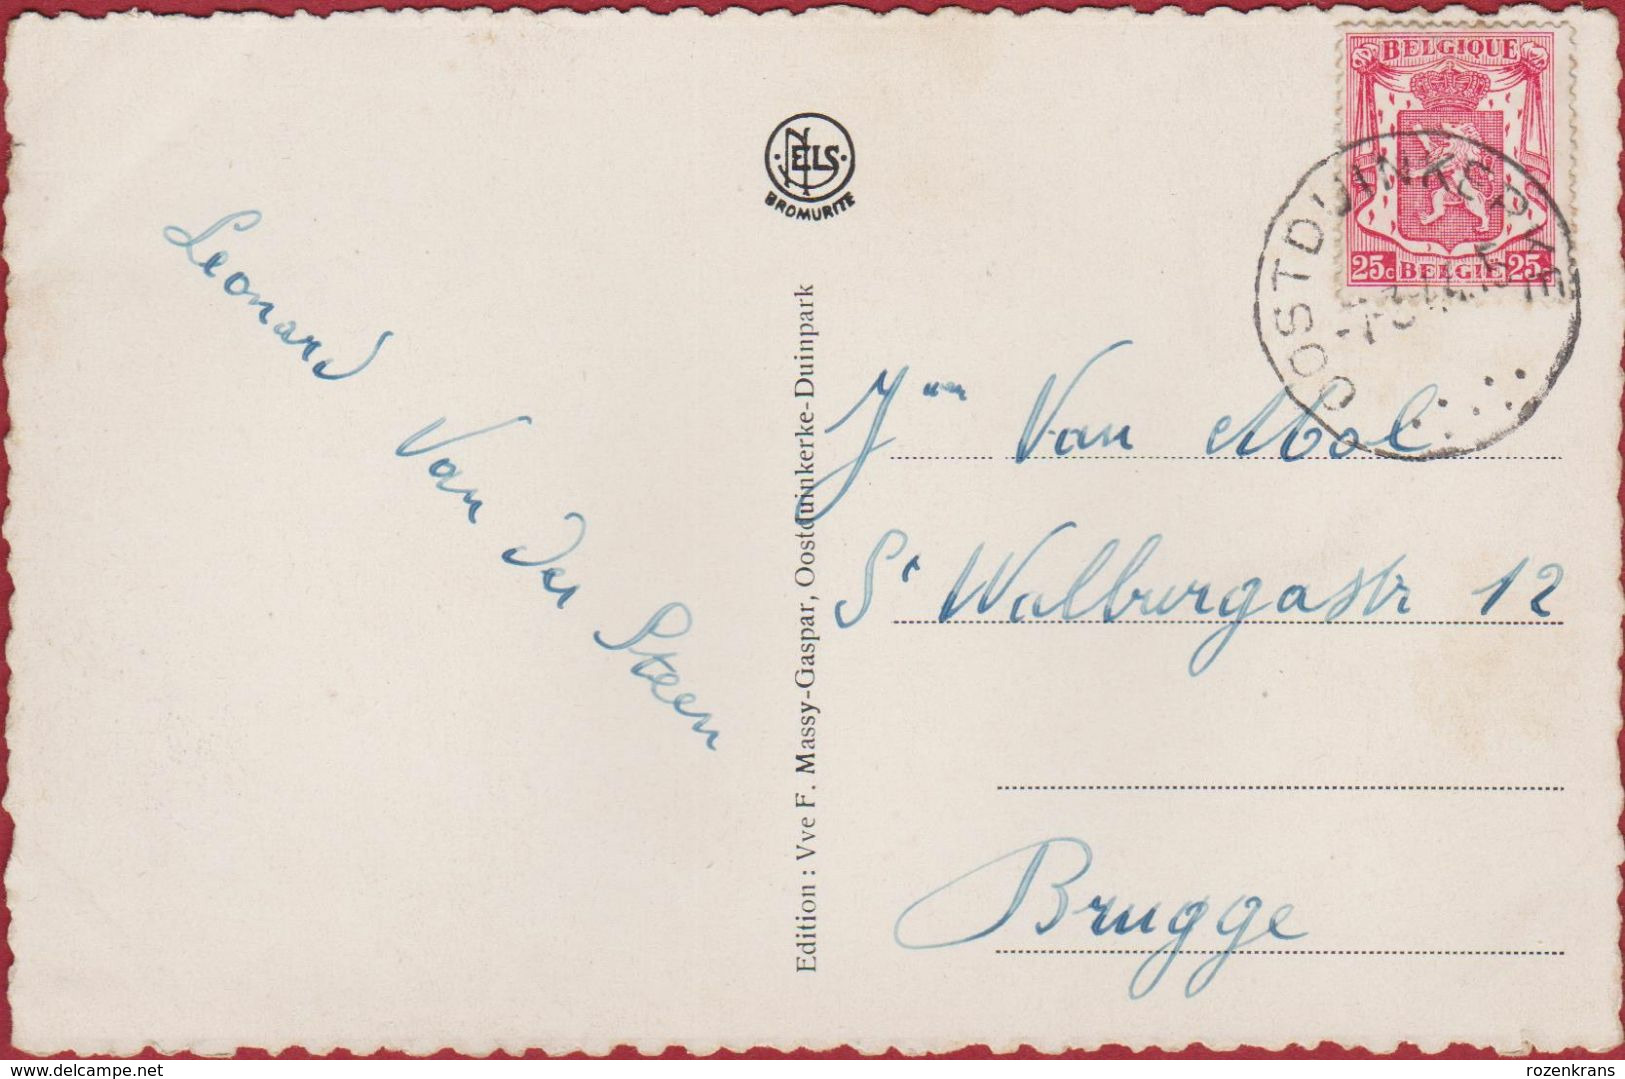 NELS
BROMURITE
BELGIQUE
25c BELGIE 25c
OOSTDUINKERKE
Leonard
Van der Steen
Edition : Vve F. Massy-Gaspar, Oostduinkerke-Duinpark
Van Mol
St Walburgastr 12
Brugge
delcampe.net
rozenkrans